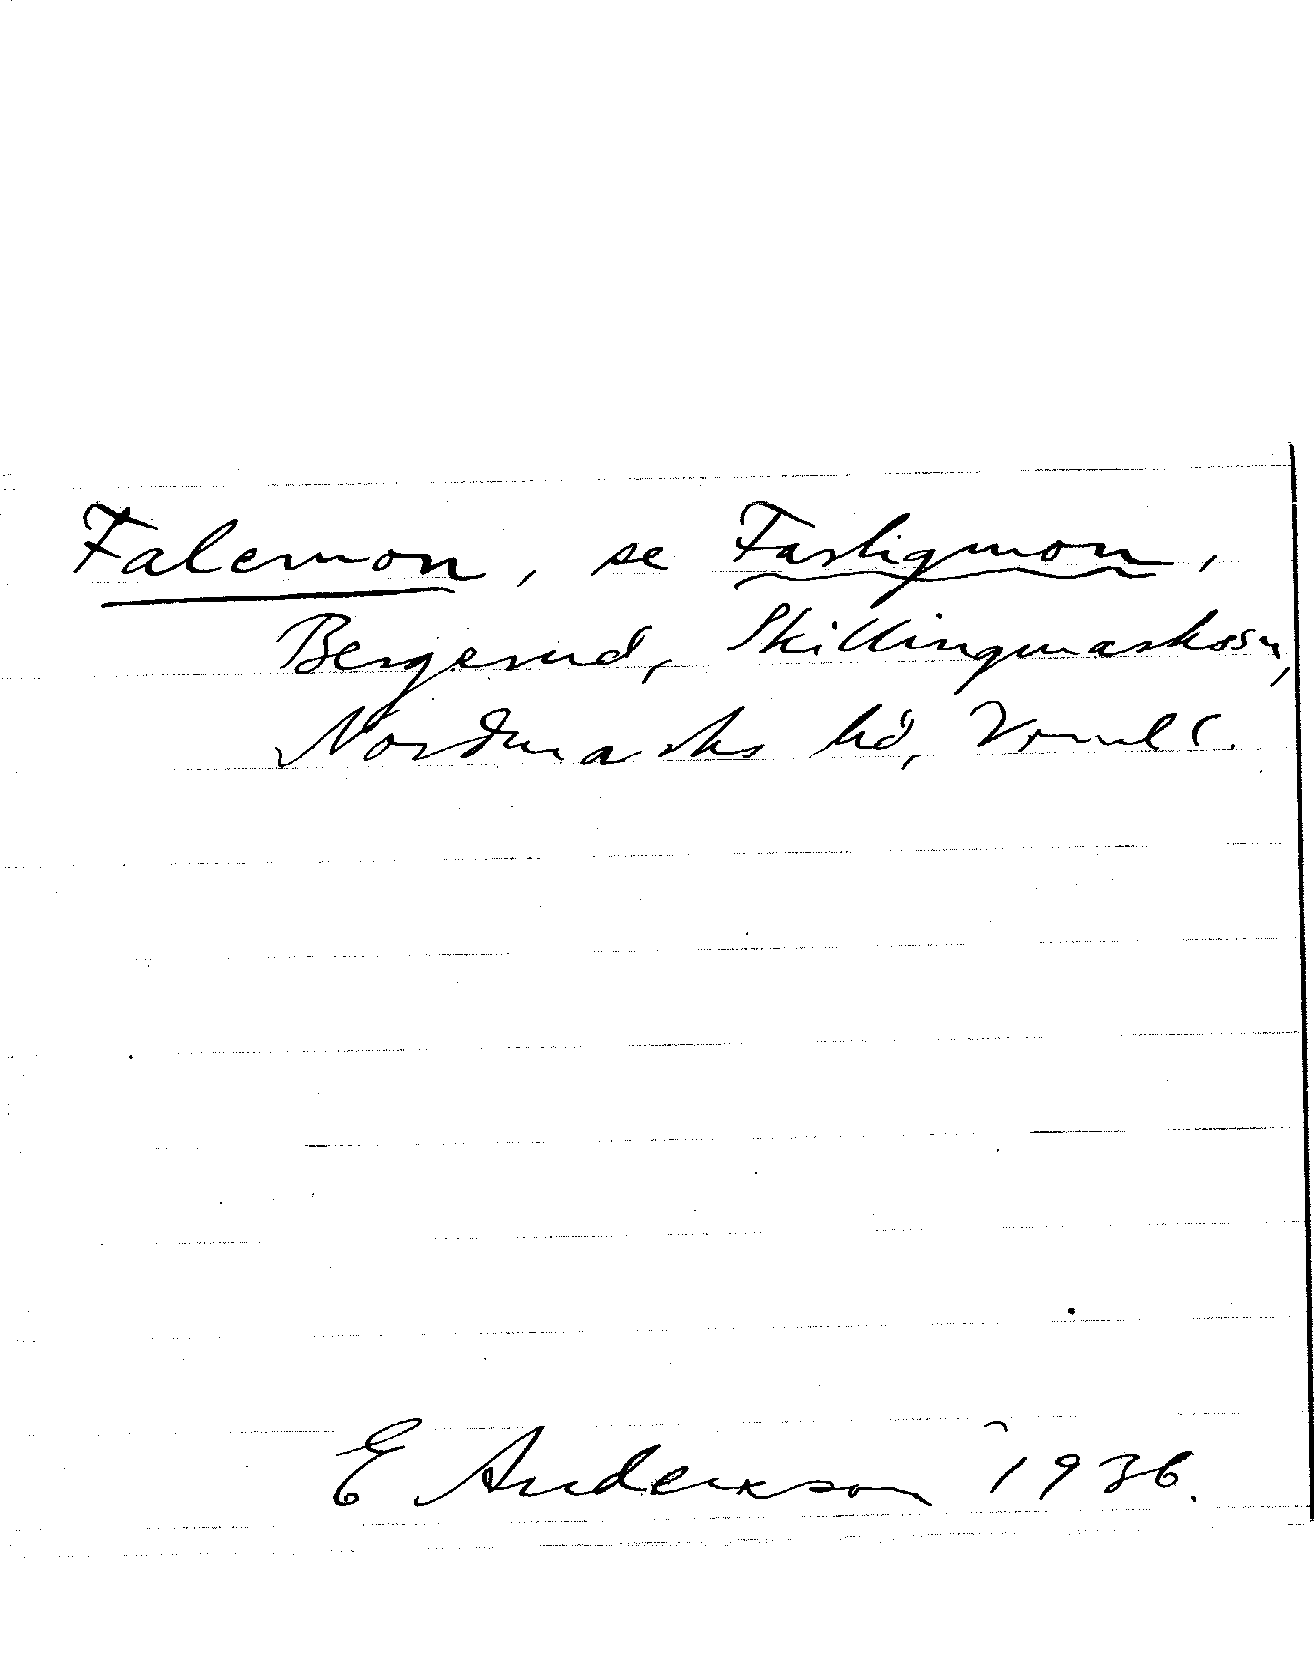 Falemon, se Fastigmon,
Bergerud, Skillingmarkssn,
Nordmarks hd, Vrml.
E Anderson 1936.